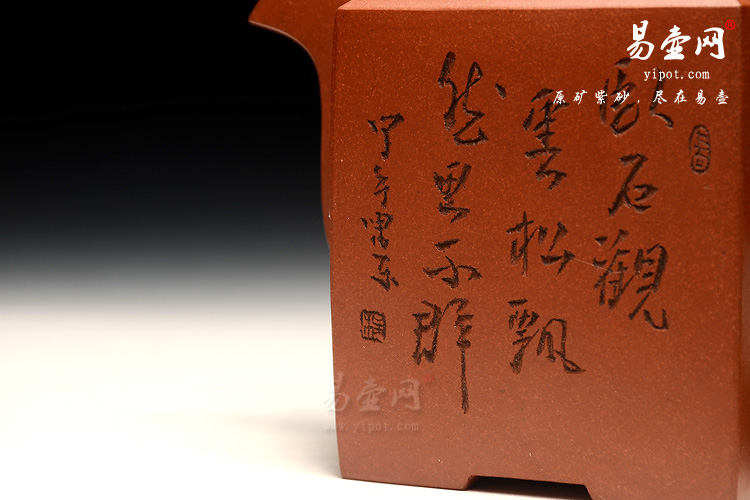 易壶网
yipot.com
原矿紫砂,尽在易壶
臥石觀
雲松飄
然思不群
易壶网
www.yipot.com